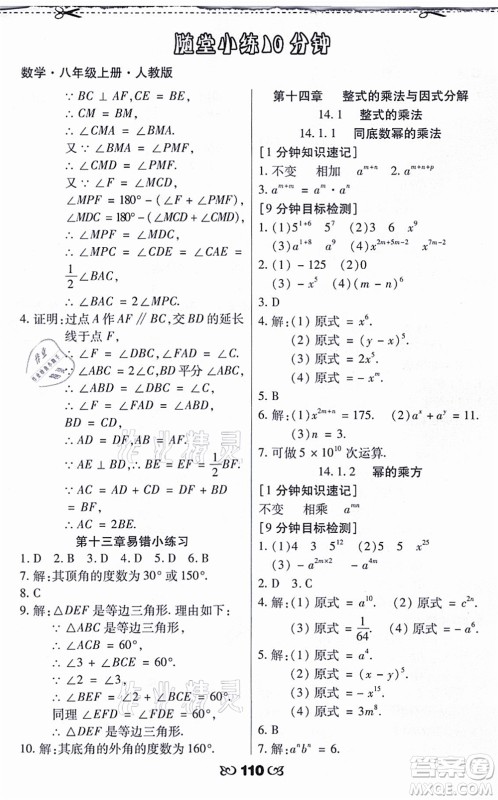 随堂小练10分钟
数学·八年级上册·人教版
∵ BC ⊥ AF, CE = EF,
∴ CM = MF,
∴ ∠CMA = ∠BMA.
又∵ ∠BMA = ∠PMF,
∴ ∠CMD = ∠PMF.
又∵ ∠MPF = ∠MDC,
∠MPF = 180° − (∠PMF + ∠MFP),
∠MDC = 180° − (∠MCD + ∠CMD),
∴ ∠MPC = ∠CDE = ∠CAE =
1/2 ∠BAC,
∴ ∠MPF = 1/2 ∠BAC.
4. 证明: 过点 A 作 AF ∥ BC, 交 BD 的延长
线于点 F,
∴ ∠F = ∠DBC, ∠FAC = ∠C,
∴ ∠ABC = 2∠C, BD 平分 ∠ABC,
∴ ∠F = ∠FAD = ∠ABF,
BD = CD,
∴ AB = AF, BE = EF = 1/2 BF.
∴ AC = AD + CD = AD + BD =
BF = 2BE.
第十三章易错小练习
1. D 2. B 3. B 4. D 5. D 6. B
7. 解: 其顶角的度数为 30° 或 150°.
8. C
9. 解: △DEF 是等边三角形. 理由如下:
∵ △ABC 是等边三角形,
∴ ∠ACB = 60°,
∴ ∠3 + ∠2 = 60°.
∵ ∠2 = ∠3,
∴ ∠BEF = ∠2 + ∠3 = 60°
同理 ∠DFE = 60°
∴ △DEF 是等边三角形.
10. 解: 其底角的外角的度数为 160°.
第十四章 整式的乘法与因式分解
14.1 整式的乘法
14.1.1 同底数幂的乘法
[1 分钟知识速记]
1. 不变 相加 a^{m+n} 2. a^{m+n+p}
3. a^{m+n} = a^m · a^n
[9 分钟目标检测]
1. (1)5^{1+6} 5^7 (2)3 4 x^8
(3)a^{1+8} a^9 (4)x^{2m+5m-2} x^{7m-2}
2. (1) − 125 (2)0
(3) − x^5 (4)(m − n)^6
3. D
4. 解: (1) 原式 = x^6.
(2) 原式 = (y − x)^5.
(3) 原式 = − x^5.
5. B
6. 解: (1)x^{2m+n} = 175. (2)a^x + a^y = 11.
7. 可做 5 × 10^{10} 次运算.
14.1.2 幂的乘方
[1 分钟知识速记]
不变 相乘 a^{mn}
[9 分钟目标检测]
1. (1)x^{12} (2) − x^{35}
(3) − a^{2m+2} − a^{2m+2}
2. D 3. C
4. 解: (1) 原式 = a^{10}. (2) 原式 = c^{2n}.
(3) 原式 = 1/64. (4) 原式 = − a^6.
5. 解: (1) 原式 = x^{17}.
(2) 原式 = a^{20}.
(3) 原式 = 0.
6. B
7. 解: a^n b^n = 5.
110
作业精灵
作业精灵
答案圈
MXQE.COM